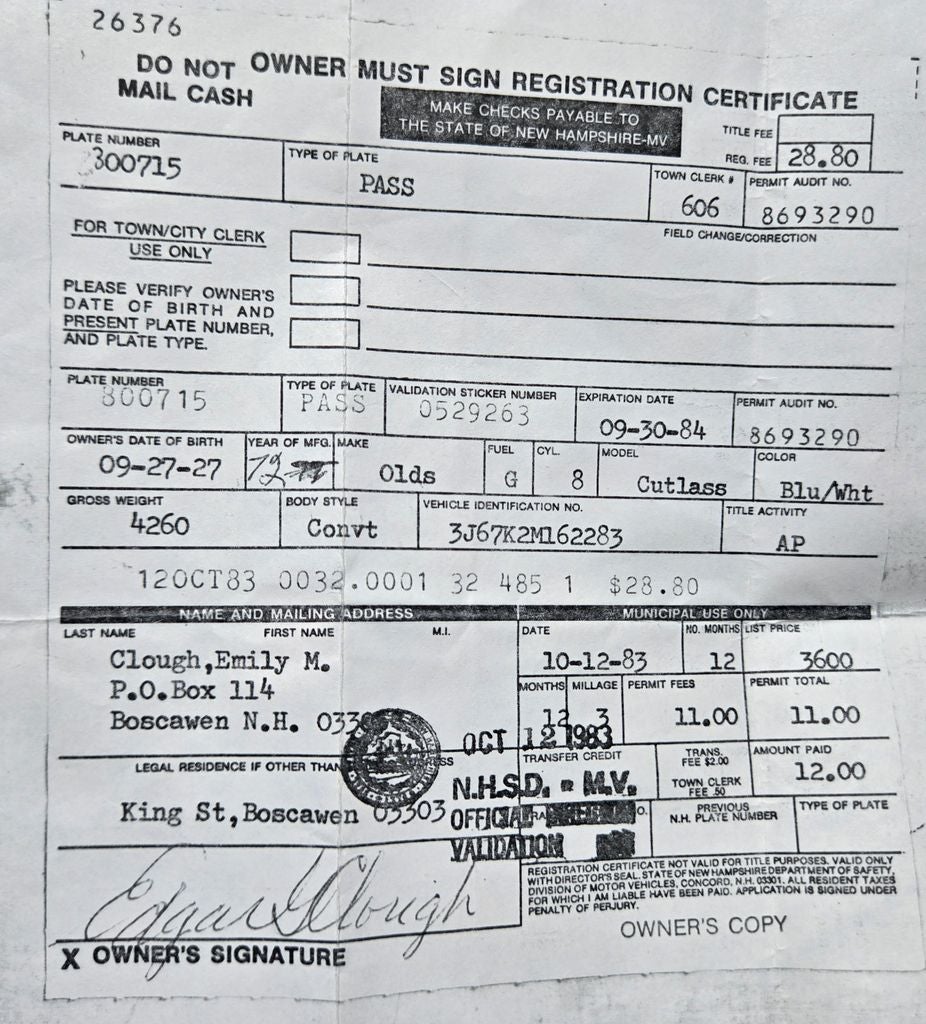 26376
DO NOT MAIL CASH
OWNER MUST SIGN REGISTRATION CERTIFICATE
MAKE CHECKS PAYABLE TO
THE STATE OF NEW HAMPSHIRE-MV
TITLE FEE
REG. FEE 28.80
PLATE NUMBER TYPE OF PLATE TOWN CLERK # PERMIT AUDIT NO.
300715 PASS 606 8693290
FOR TOWN/CITY CLERK
USE ONLY
FIELD CHANGE/CORRECTION
PLEASE VERIFY OWNER'S
DATE OF BIRTH AND
PRESENT PLATE NUMBER,
AND PLATE TYPE.
PLATE NUMBER TYPE OF PLATE VALIDATION STICKER NUMBER EXPIRATION DATE PERMIT AUDIT NO.
300715 PASS 0529263 09-30-84 8693290
OWNER'S DATE OF BIRTH YEAR OF MFG. MAKE FUEL CYL. MODEL COLOR
09-27-27 72 Olds G 8 Cutlass Blu/Wht
GROSS WEIGHT BODY STYLE VEHICLE IDENTIFICATION NO. TITLE ACTIVITY
4260 Convt 3J67K2M162283 AP
12OCT83 0032.0001 32 485 1 $28.80
NAME AND MAILING ADDRESS MUNICIPAL USE ONLY
LAST NAME FIRST NAME M.I. DATE NO. MONTHS LIST PRICE
Clough,Emily M. 10-12-83 12 3600
P.O.Box 114 MONTHS MILLAGE PERMIT FEES PERMIT TOTAL
Boscawen N.H. 12 3 11.00 11.00
OCT 12 1983
LEGAL RESIDENCE IF OTHER THAN TRANSFER CREDIT TRANS. FEE $2.00 AMOUNT PAID
TOWN CLERK FEE .50 12.00
N.H.S.D. - M.V.
King St,Boscawen 03303 OFFICIAL PREVIOUS N.H. PLATE NUMBER TYPE OF PLATE
VALIDATION
Edgar G Clough
X OWNER'S SIGNATURE
REGISTRATION CERTIFICATE NOT VALID FOR TITLE PURPOSES. VALID ONLY
WITH DIRECTOR'S SEAL. STATE OF NEW HAMPSHIRE DEPARTMENT OF SAFETY,
DIVISION OF MOTOR VEHICLES, CONCORD, N.H. 03301. ALL RESIDENT TAXES
FOR WHICH I AM LIABLE HAVE BEEN PAID. APPLICATION IS SIGNED UNDER
PENALTY OF PERJURY.
OWNER'S COPY